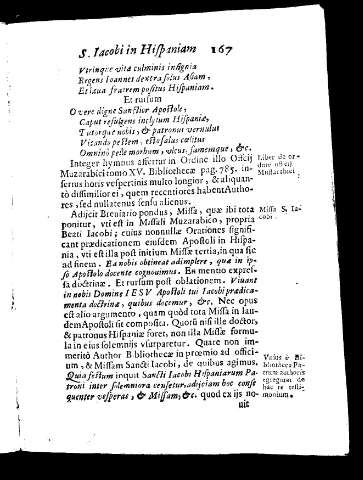 S. Iacobi in Hispaniam 167
Vtrinque vitæ culminis insignia
Regens Ioannes dextra solus Asiam,
Et læua fratrem positus Hispaniam.
Et rursum
O vere digne Sanctior Apostole,
Caput refulgens inclytum Hispaniæ,
Tutorque nobis, & patronus vernulus
Vitando pestem, esto salus cælitus
Omnino pelle morbum, vlcus, famemque, &c.
Integer hymnus affertur in Ordine illo Officij
Muzarabici tomo XV. Bibliothecæ pag. 785. in-
sertus horis vespertinis multo longior, & aliquan-
to dissimilior ei, quem recentiores habent Autho-
res, sed nullatenus sensu alienus.
Liber de or-
dine officij
Muzarabici
Adijcit Breuiario pondus, Missa, quæ ibi tota
ponitur, vti est in Missali Muzarabico, propria
Beati Iacobi; cuius nonnullæ Orationes signifi-
cant prædicationem eiusdem Apostoli in Hispa-
nia, vti est illa post initium Missæ tertia, in qua sic
ad finem. Ea nobis obtineat adimplere, quæ in ip-
so Apostolo docente cognouimus. En mentio expres-
sa doctrinæ. Et rursum post oblationem. Viuant
in nobis Domine IESV Apostoli tui Iacobi prædica-
menta doctrinæ, quibus docemur, &c. Nec opus
est alio argumento, quam quòd tota Missa in lau-
dem Apostoli sit composita. Quòd si nisi ille doctor,
& patronus Hispaniæ foret, non illa Missæ formu-
la in eius solemnijs vsurparetur. Quare non im-
meritò Author Bibliothecæ in proœmio ad offici-
um, & Missam Sancti Iacobi, de quibus agimus.
Quia festum inquit Sancti Iacobi Hispaniarum Pa-
troni inter solemniora censetur, adijciam hoc conse
quenter vesperas, & Missam, &c. quod ex ijs no-
uit
Missa S. Ia-
cobi
Bi-
bliothecæ Pa-
trum authoris
egregium de
hac re testi-
monium.